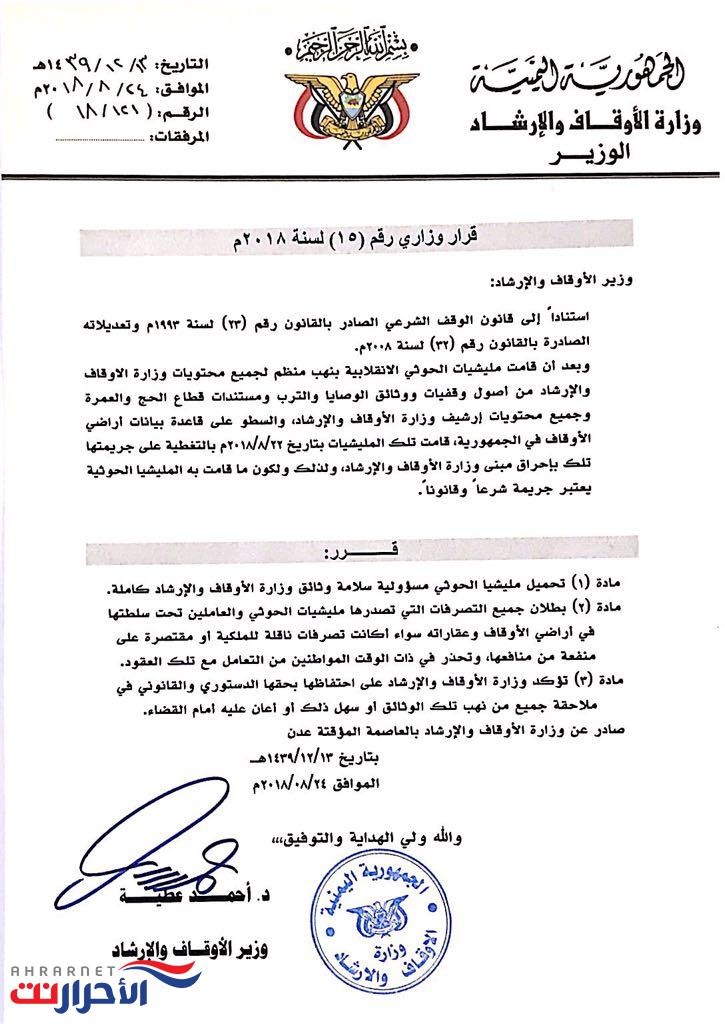 بسم الله الرحمن الرحيم
الجمهورية اليمنية
وزارة الأوقاف والإرشاد
الوزير
التاريخ: ١٤٣٩/١٢/١٣هـ
الموافق: ٢٠١٨/٨/٢٤م
الرقم: ( ١٨/١٢١ )
المرفقات:
قرار وزاري رقم (١٥) لسنة ٢٠١٨م
وزير الأوقاف والإرشاد:
استناداً إلى قانون الوقف الشرعي الصادر بالقانون رقم (٢٣) لسنة ١٩٩٣م وتعديلاته
الصادرة بالقانون رقم (٣٢) لسنة ٢٠٠٨م.
وبعد أن قامت مليشيات الحوثي الانقلابية بنهب منظم لجميع محتويات وزارة الاوقاف
والإرشاد من أصول وقفيات ووثائق الوصايا والترب ومستندات قطاع الحج والعمرة
وجميع محتويات إرشيف وزارة الأوقاف والإرشاد، والسطو على قاعدة بيانات أراضي
الأوقاف في الجمهورية، قامت تلك المليشيات بتاريخ ٢٠١٨/٨/٢٢م بالتغطية على جريمتها
تلك بإحراق مبنى وزارة الأوقاف والإرشاد، ولذلك ولكون ما قامت به المليشيا الحوثية
يعتبر جريمة شرعاً وقانوناً.
قـــــرر:
مادة (١) تحميل مليشيا الحوثي مسؤولية سلامة وثائق وزارة الأوقاف والإرشاد كاملة.
مادة (٢) بطلان جميع التصرفات التي تصدرها مليشيات الحوثي والعاملين تحت سلطتها
في أراضي الأوقاف وعقاراته سواء أكانت تصرفات ناقلة للملكية أو مقتصرة على
منفعة من منافعها، وتحذر في ذات الوقت المواطنين من التعامل مع تلك العقود.
مادة (٣) تؤكد وزارة الأوقاف والإرشاد على احتفاظها بحقها الدستوري والقانوني في
ملاحقة جميع من نهب تلك الوثائق أو سهل ذلك أو أعان عليه أمام القضاء.
صادر عن وزارة الأوقاف والإرشاد بالعاصمة المؤقتة عدن
بتاريخ ١٤٣٩/١٢/١٣هـ
الموافق ٢٠١٨/٠٨/٢٤م
والله ولي الهداية والتوفيق،،،
د. أحمـــد عطيـــة
وزير الأوقاف والإرشاد
الجمهورية اليمنية
وزارة
الاوقاف والارشاد
AHRARNET
الأحرار نت